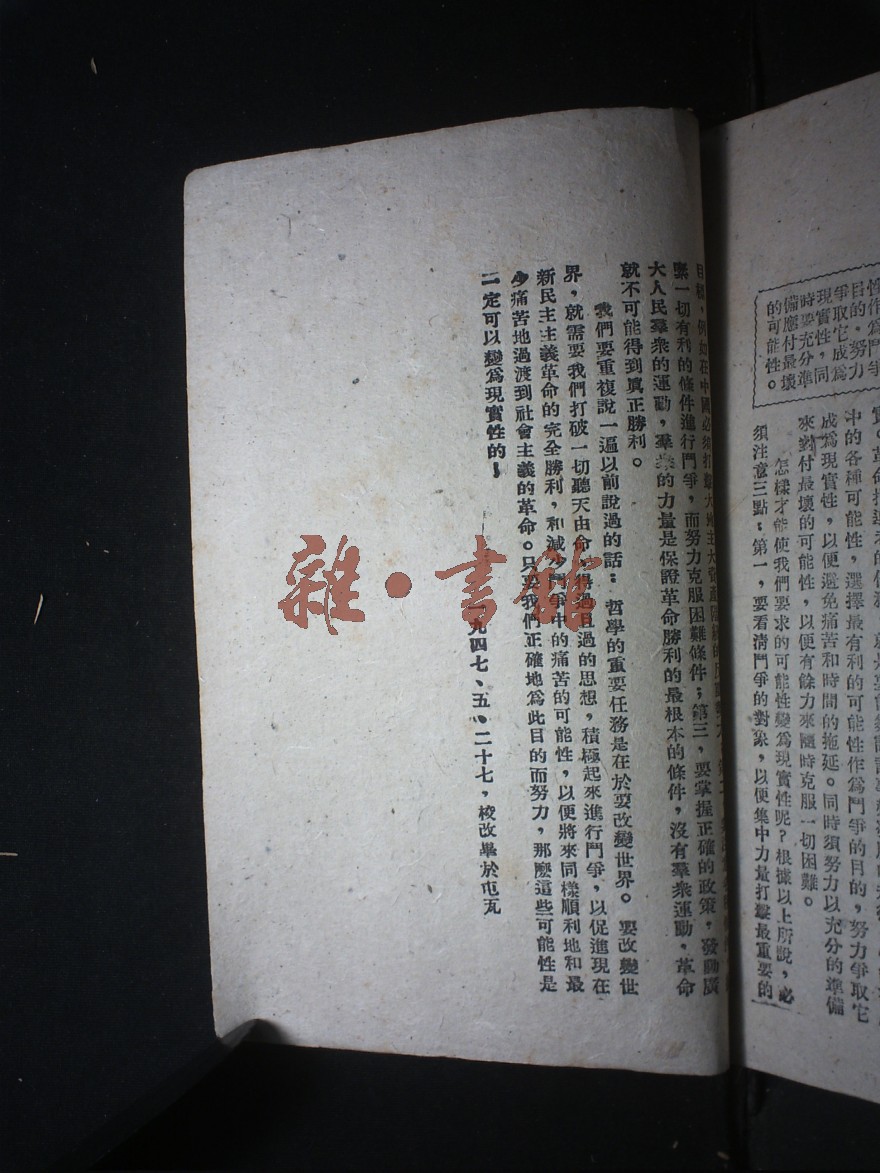 性作爲鬥爭
目的，努力
爭取它成爲
現實性，同
時要充分準
備應付最壞
的可能性。
中的各種可能性，選擇最有利的可能性作爲鬥爭的目的，努力爭取它
成爲現實性，以便避免痛苦和時間的拖延。同時須努力以充分的準備
來對付最壞的可能性，以便有餘力來隨時克服一切困難。
怎樣才能使我們要求的可能性變爲現實性呢？根據以上所說，必
須注意三點：第一，要看清鬥爭的對象，以便集中力量打擊最重要的
目標，例如在中國必須打擊大地主大資產階級的
一切有利的條件進行鬥爭，而努力克服困難條件；第三，要掌握正確的政策，發動廣
大人民羣衆的運動，羣衆的力量是保證革命勝利的最根本的條件，沒有羣衆運動，革命
就不可能得到眞正勝利。
我們要重複說一遍以前說過的話：哲學的重要任務是在於要改變世界。要改變世
界，就需要我們打破一切聽天由命，得過且過的思想，積極起來進行鬥爭，以促進現在
新民主主義革命的完全勝利，和減少鬥爭中的痛苦的可能性，以便將來同樣順利地和最
少痛苦地過渡到社會主義的革命。只要我們正確地爲此目的而努力，那麼這些可能性是
一定可以變爲現實性的！
一九四七、五、二十七，校改畢於屯瓦
雜·書館